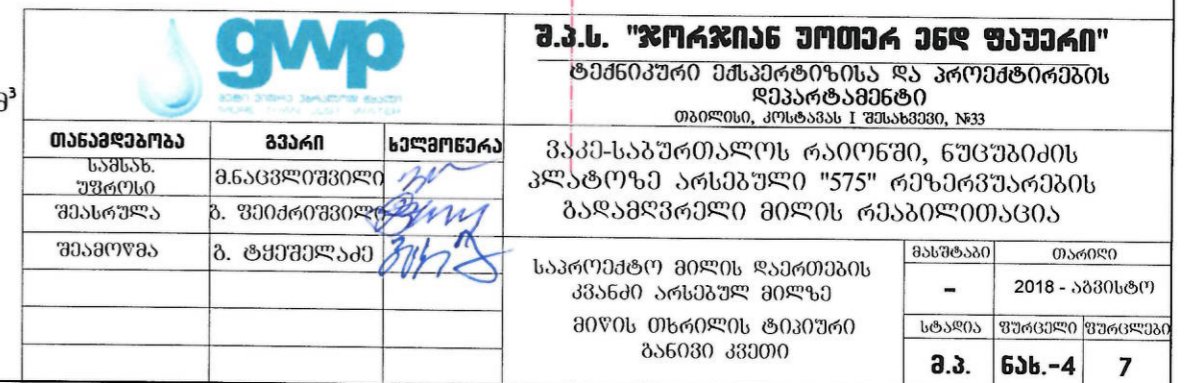 მ³
gwp
მეტი ვიდრე უბრალოდ წყალი
MORE THAN JUST WATER
შ.პ.ს. "ჯორჯიან უოთერ ენდ ფაუერი"
ტექნიკური ექსპერტიზისა და პროექტირების
დეპარტამენტი
თბილისი, კოსტავას I შესახვევი, №33
თანამდებობა გვარი ხელმოწერა
სამსახ.
უფროსი
მ.ნაცვლიშვილი
შეასრულა გ. ფეიქრიშვილი
შეამოწმა გ. ტყეშელაძე
ვაკე-საბურთალოს რაიონში, ნუცუბიძის
პლატოზე არსებული "575" რეზერვუარების
გადამღვრელი მილის რეაბილითაცია
საპროექტო მილის დაერთების
კვანძი არსებულ მილზე
მიწის თხრილის ტიპიური
განივი კვეთი
მასშტაბი თარიღი
– 2018 - აგვისტო
სტადია ფურცელი ფურცლები
მ.პ. ნახ.-4 7